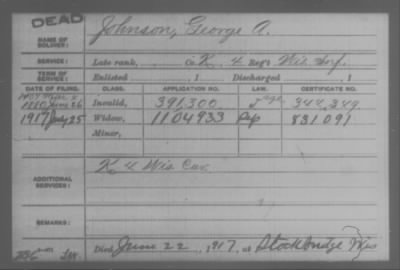 DEAD
Johnson, George A.
NAME OF SOLDIER:
SERVICE: Late rank, Co. K, 4 Reg't Wis. Inf.
TERM OF SERVICE: Enlisted , 1 Discharged , 1
DATE OF FILING. CLASS. APPLICATION NO. LAW. CERTIFICATE NO.
1880 June 26 Invalid, 391.300 344.349
1917 July 25 Widow, 1104933 831091
Minor,
K 4 Wis Cav.
ADDITIONAL SERVICES:
REMARKS:
Died June 22, 1917, at Stockbridge Wis